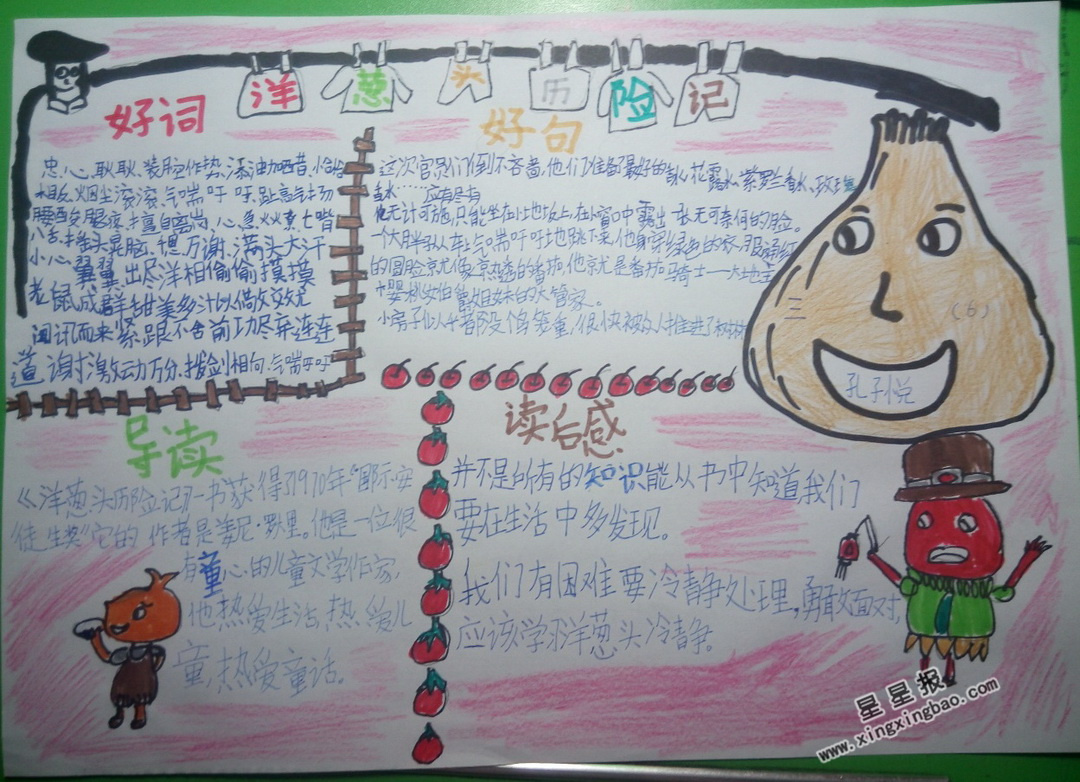 洋葱头历险记
好词
忠心耿耿、装腔作势、添油加醋昔、恰恰
相反、烟尘滚滚、气喘吁吁、趾高气扬
腰酸腿疼、擅自离岗、心急火燎、七嘴
八舌、摇头晃脑、恩万谢、满头大汗
小心翼翼、出尽洋相、偷偷摸摸
老鼠成群、甜美多汁、以倚
闻讯而来、紧跟不舍、前功尽弃、连连
道谢、激动万分、拔剑相向、气喘吁吁
好句
这次官员们倒不吝啬,他们准备最好的香水、花露水、紫罗兰香水、玫瑰
香水……应有尽有
他无计可施,只能坐在小地坂上,在小窗口中露出一张无可奈何的脸。
一个大胖子从车上气喘吁吁地跳下来,他身穿绿色的衣服,通红
的圆脸京尤像烹熟透的番茄,他京尤是番茄骑士——大地主
樱桃女伯爵姐妹的大管家。
小房子似乎没
三
(6)
孔子悦
导读
《洋葱头历险记》一书获得了1970年“国际安
徒生奖”它的作者是姜尼·罗里。他是一位很
有童心的儿童文学作家,
他热爱生活,热爱儿
童,热爱童话。
读后感
并不是的所有的知识能从书中知道我们
要在生活中多发现。
我们有困难要冷静处理,勇敢面对,
应该学习洋葱头冷静。
星星报
www.xingxingbao.com